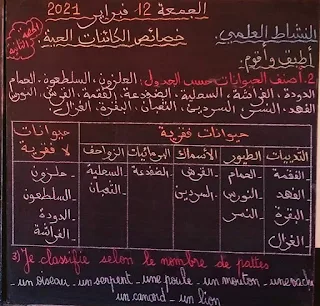 الجمعة 12 فبراير 2021
النشاط العلمي: خصائص الكائنات الحية الحصة الثانية
أطبق وأقوم:
2. أصنف الحيوانات حسب الجدول: الحلزون، السلطعون، الحمام
الدودة، الفراشة، السحلية، الضفدعة، الفقمة، القرش، النورس
الفهد، النسر، السردين، الثعبان، البقرة، الغزال.
حيوانات فقرية
حيوانات لا فقرية
الثدييات الطيور الأسماك البرمائيات الزواحف
الفقمة الحمام القرش الضفدعة السحلية - حلزون
الفهد النورس السردين الثعبان - السلطعون
البقرة النسر - الدودة
الغزال - الفراشة
3) Je classifie selon le nombre de pattes
- un oiseau - un serpent - une poule - un mouton - une vache
un canard - un lion